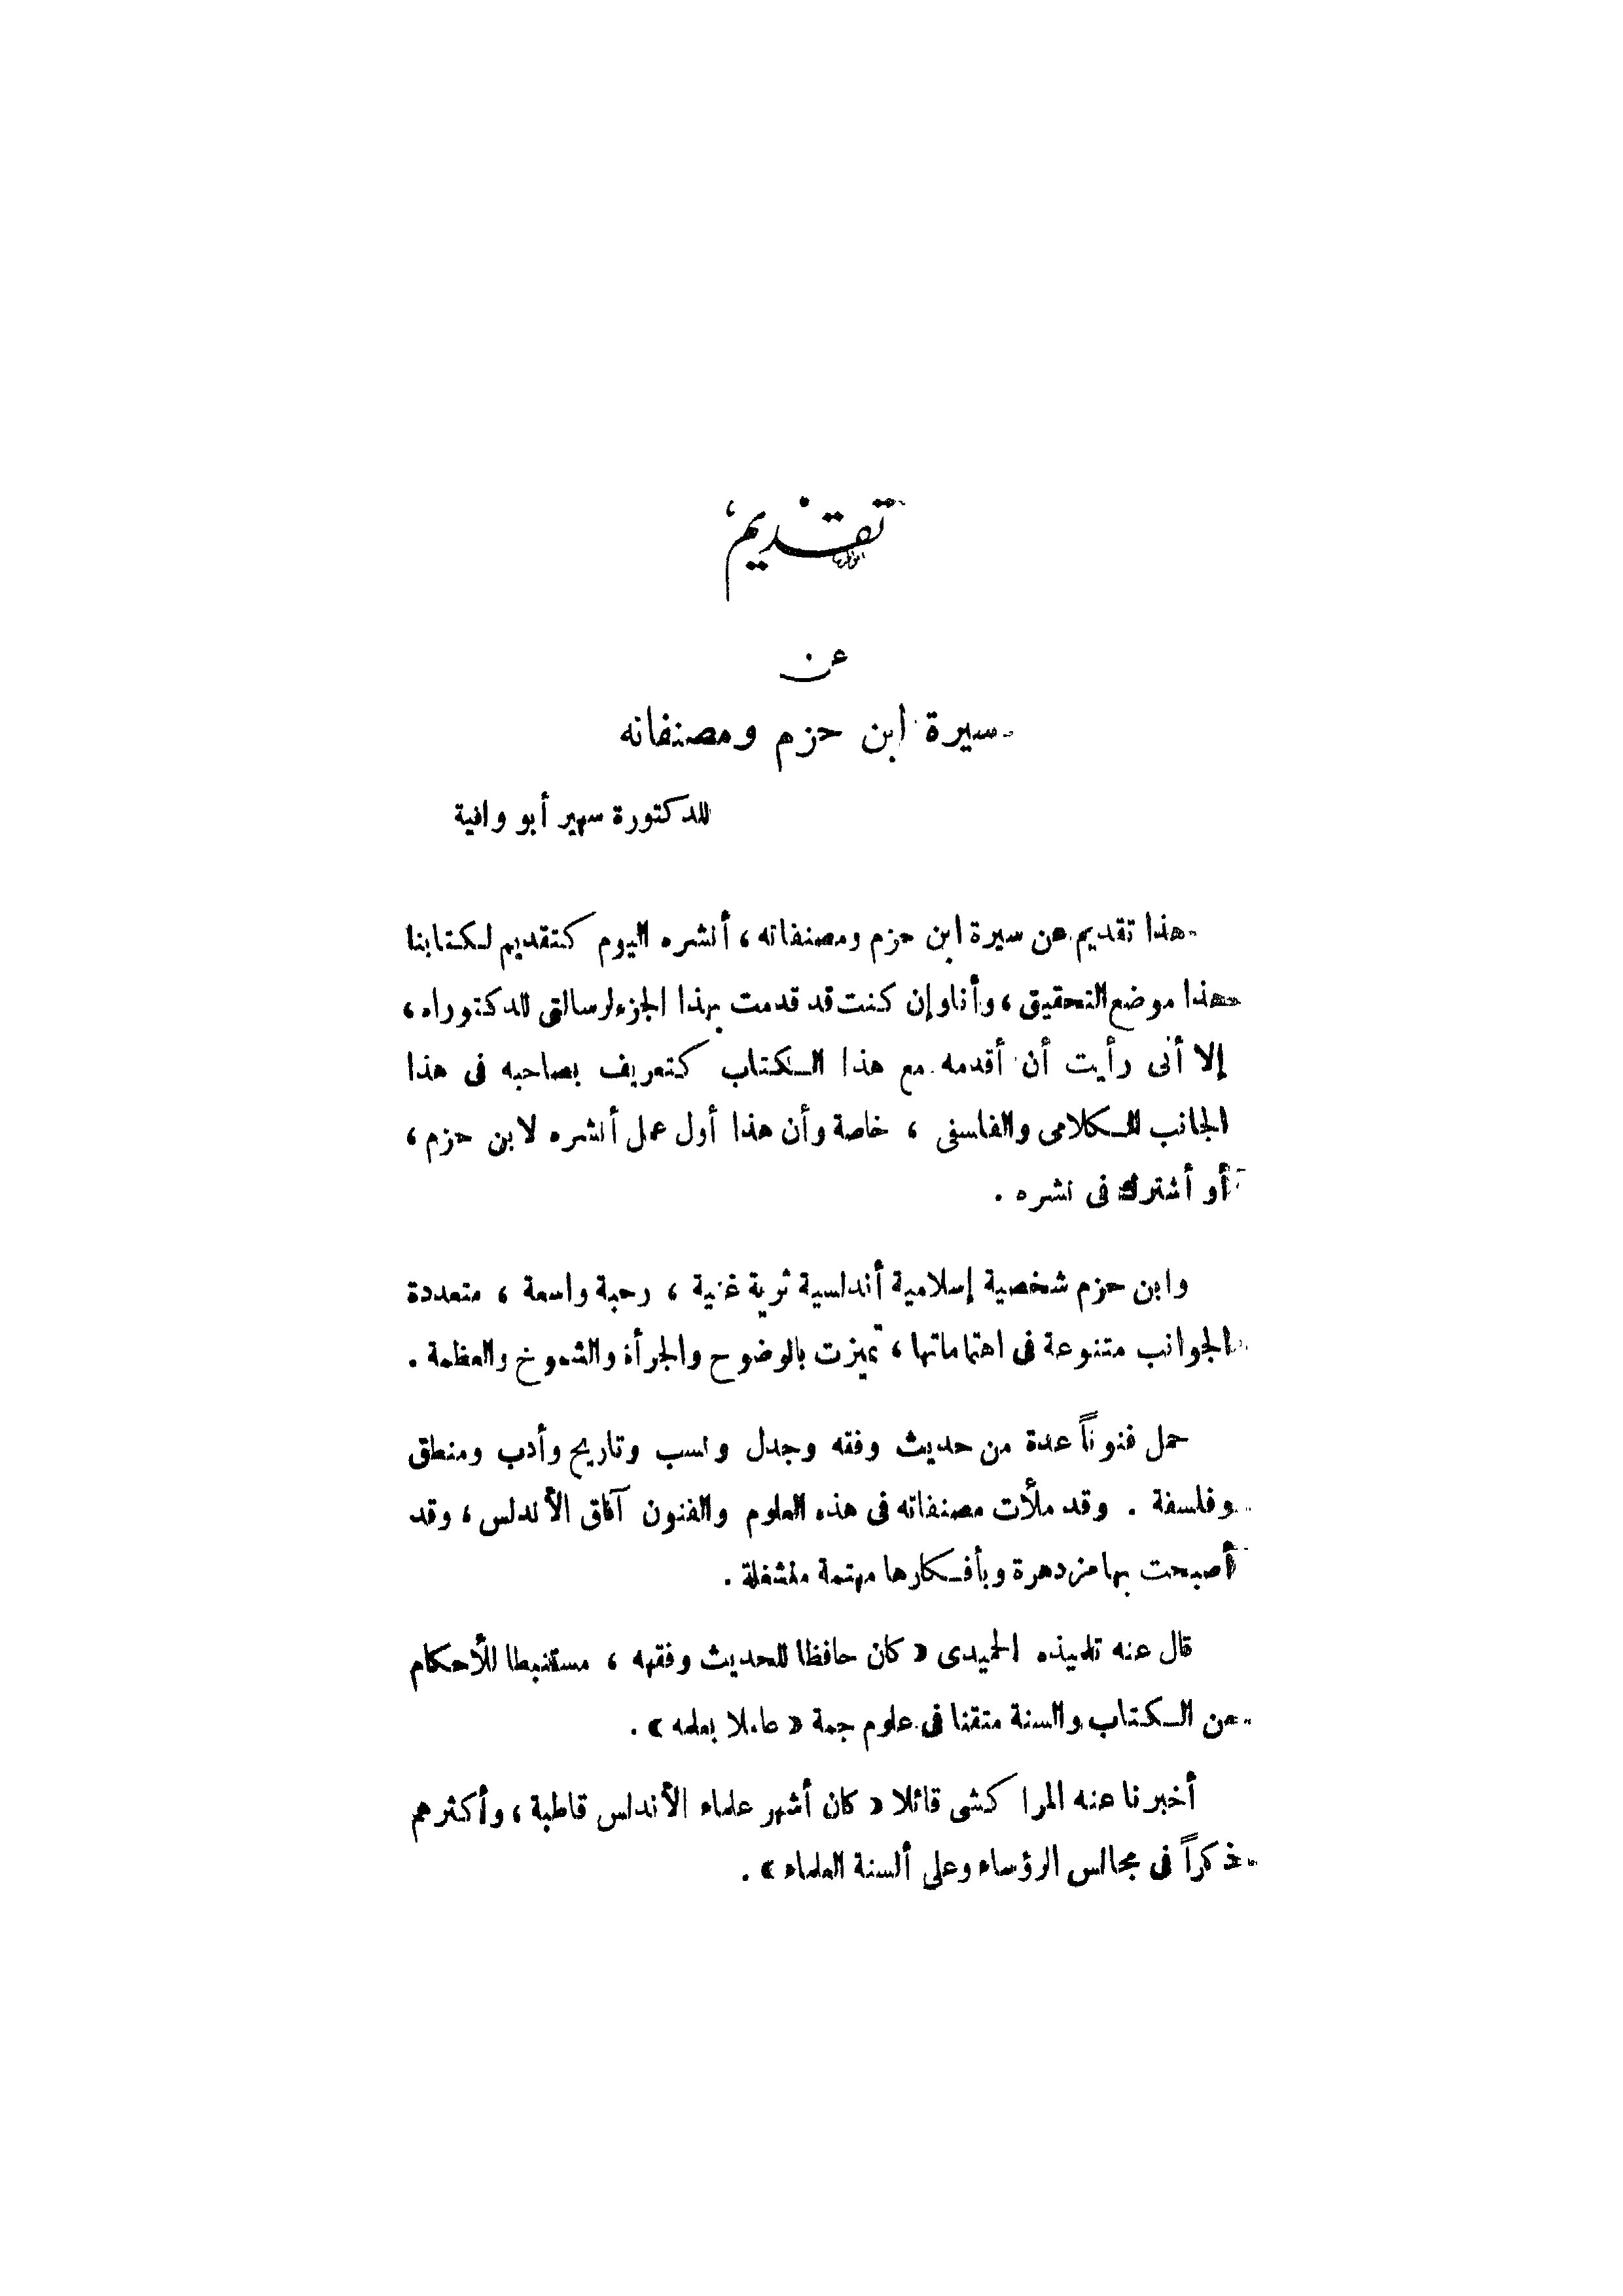 تقديم
عن
سيرة ابن حزم ومصنفاته
للدكتورة سهير أبو وافية
هذا تقديم عن سيرة ابن حزم ومصنفاته، أنشره اليوم كتقديم لكتابنا
هذا موضع التحقيق، وأنا وإن كنت قد قدمت بهذا الجزء لرسالتى للدكتوراه،
إلا أنى رأيت أن أقدمه مع هذا الكتاب كتعريف بصاحبه فى هذا
الجانب الكلامى والفلسفى ، خاصة وأن هذا أول عمل أنشره لابن حزم،
أو أشترك فى نشره .
وابن حزم شخصية إسلامية أندلسية ثرية غنية ، رحبة واسعة ، متعددة
الجوانب متنوعة فى اهتماماتها، تميزت بالوضوح والجرأة والشموخ والعظمة .
حمل فنوناً عدة من حديث وفقه وجدل ونسب وتاريخ وأدب ومنطق
وفلسفة . وقد ملأت مصنفاته فى هذه العلوم والفنون آفاق الأندلس، وقد
أصبحت بها مزدهرة وبأفكارها مهتمة منشغلة .
قال عنه تلميذه الحميدى « كان حافظا للحديث وفقهه ، مستنبطا للأحكام
من الكتاب والسنة متقنا فى علوم جمة « عاملا بعلمه » .
أخبرنا عنه المراكشى قائلا « كان أشهر علماء الأندلس قاطبة، وأكثرهم
ذكراً فى مجالس الرؤساء وعلى ألسنة العلماء » .